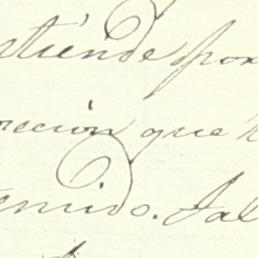 atiende por
recion que
emido. Sal